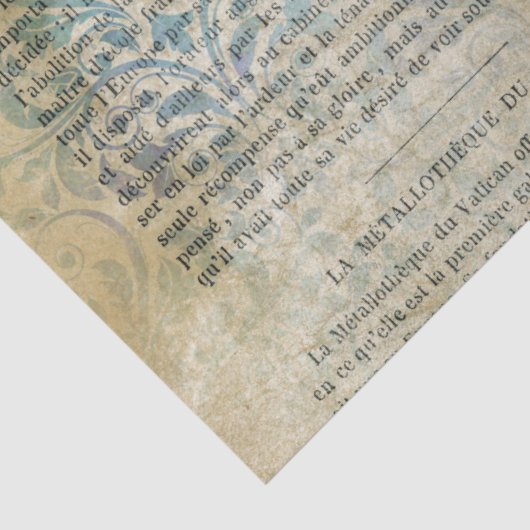 importa
décidée; il
l'abolition de
maître d'école fran
toute l'Europe par se
il disposât, l'orateur ang
et aidé d'ailleurs par les
découvrirent alors au cabine
ser en loi par l'ardeur et la téna
seule récompense qu'eût ambitionn
pensé, non pas à sa gloire, mais au
qu'il avait toute sa vie désiré de voir sou
LA MÉTALLOTHÈQUE DU
La Métallothèque du Vatican off
en ce qu'elle est la première